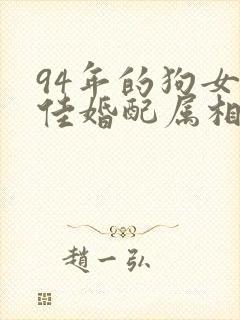 94年的狗女
佳婚配属相
趙一弘